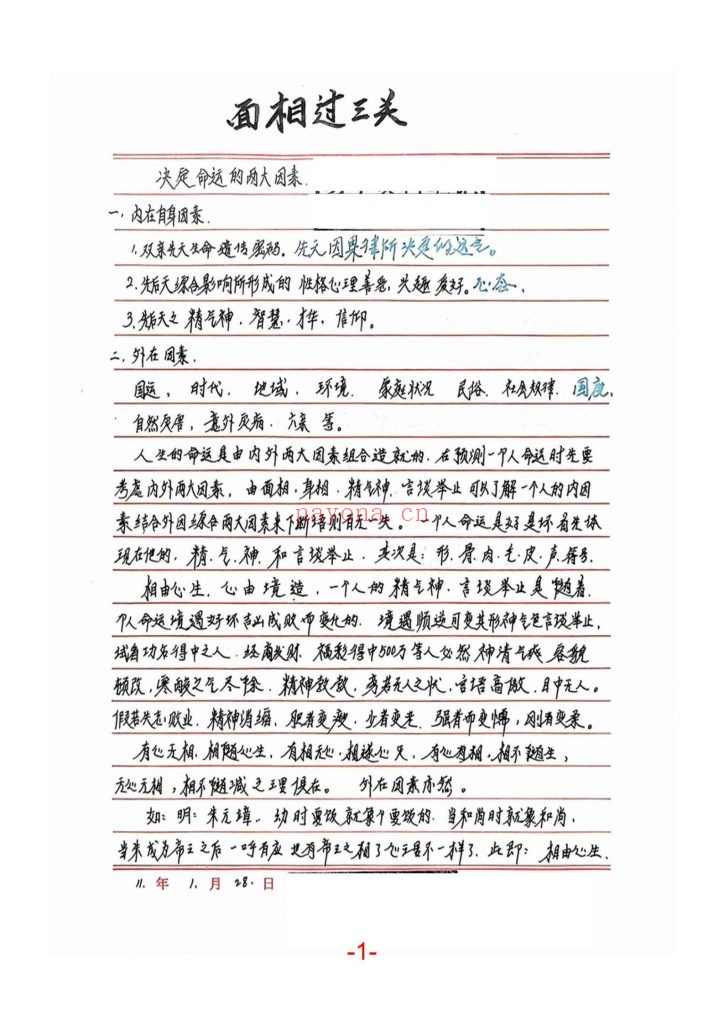 面相过三关
决定命运的两大因素.
一,内在自身因素.
1.双亲先天生命遗传密码.先元因果律所决定的运气。
2.先后天综合影响所形成的 性格心理善恶.兴趣 爱好.心态.
3.先后天之 精气神.智慧.才华、信仰。
二.外在因素.
国运, 时代. 地域. 环境. 家庭状况 民俗. 社会规律. 国度.
自然灾害,意外灾病.六亲 等。
人生的命运是由内外两大因素组合造就的.在预测一个人命运时先要
考虑内外两大因素, 由面相,身相.精气神.言谈举止 可以了解一个人的内因
素结合外因综合两大因素来下断语则百无一失。一个人命运是好是坏首先体
nayona.cn
现在他的,精.气.神.和言谈举止. 其次是:形.骨.肉.毛.皮.声.符号.
相由心生.心由境造,一个人的精气神.言谈举止是随着.
个人命运境遇好坏吉凶成败而变化的. 境遇顺逆可变其形神气色言谈举止.
试看功名得中之人.经商发财.福彩得中500万等人必然神清气爽 容貌
顿改,寒酸之气尽除.精神救救.旁若无人之状.言语高傲.目中无人。
假若失志败业.精神消缩.肥者变瘦.少者变老.强者而变懦,刚者变柔。
有心无相.相随心生.有相无心.相逐心灭.有心有相.相不随生,
无心无相,相不随减之理俱在。 外在因素亦然。
如:明:朱元璋.幼时要饭就象个要饭的.当和尚时就象和尚.
当来成为帝王之后一呼百应也有帝王之相了心立居不一样了.此即: 相由心生.
11.年1.月28.日
-1-